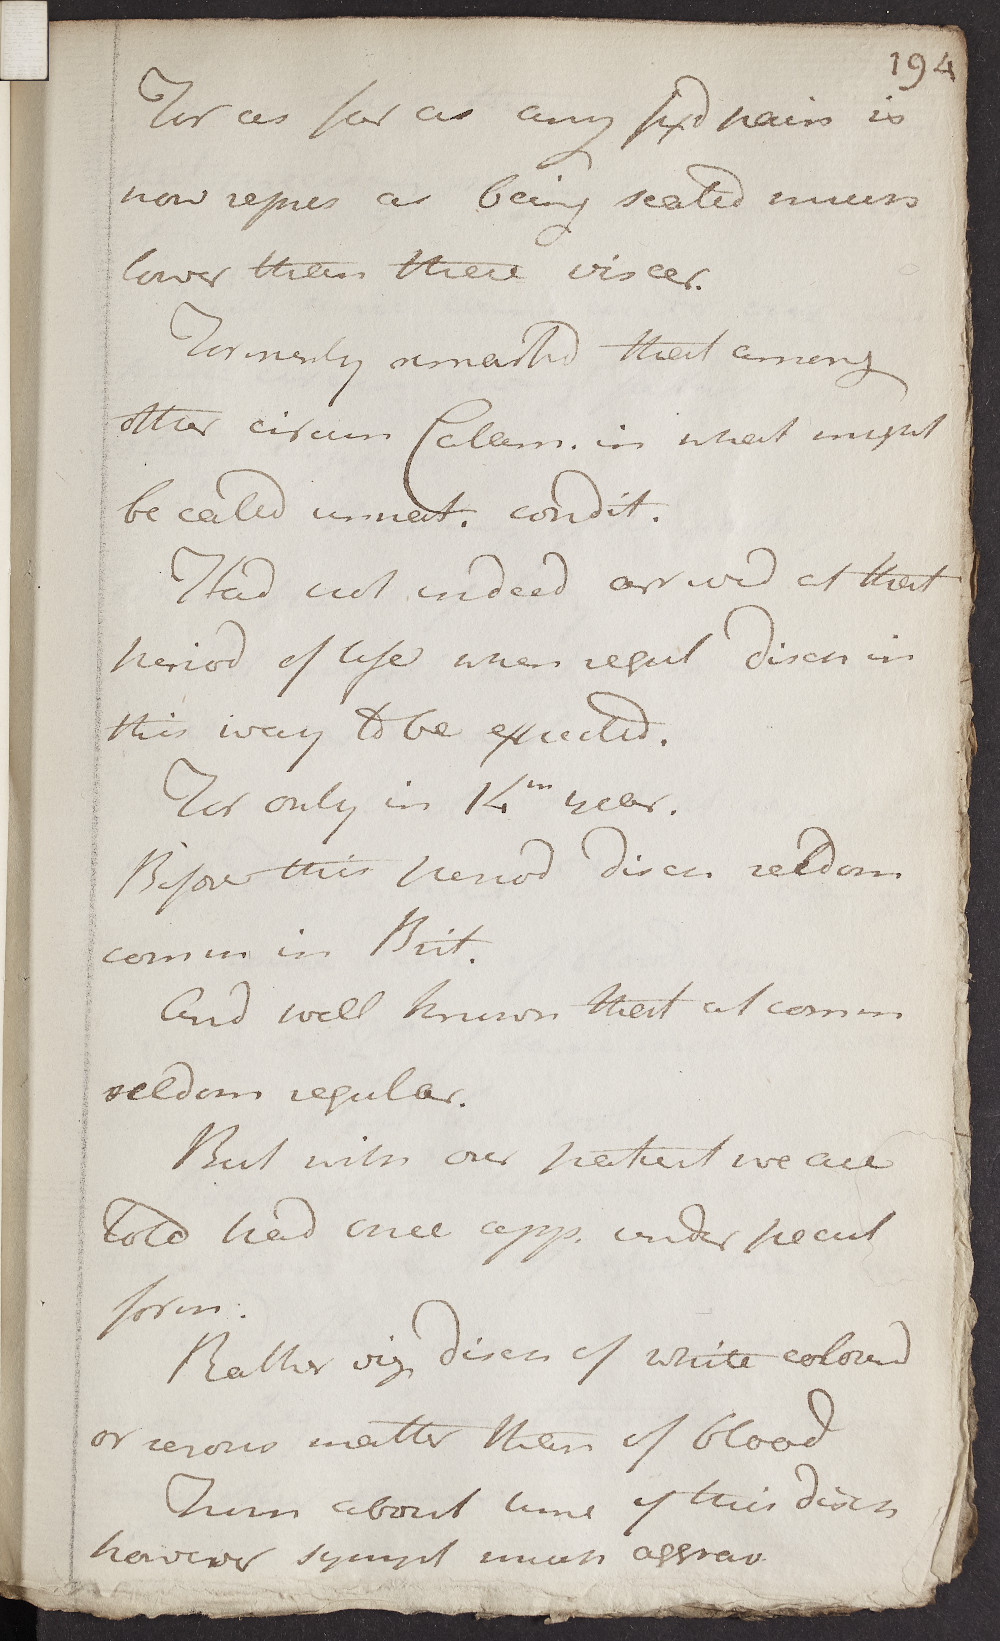 194
For as far as any fixd pain is
now repres as being seated much
lower than these viscer.
Formerly remarkd that among
other circum Catam. in what might
be called unnat. condit.
Had not indeed arrived at that
period of life when regul disch in
this way to be expected.
For only in 14th year.
Before this period disch seldom
comm in Brit.
And well known that at comm
seldom regular.
But with our patient we are
told had once app. under pecul
form.
Rather viz disch of white colourd
or serous matter than of blood
From about time of this disch
however sympt much aggrav